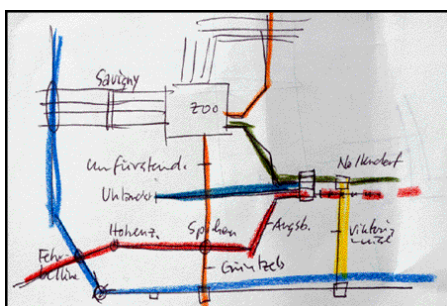 Savigny
ZOO
Kurfürstend.
Nollendorf
Uhland
Hohenz.
Spichern
Augsb.
Viktoria
Luise
Fehr-
belline
Güntzels